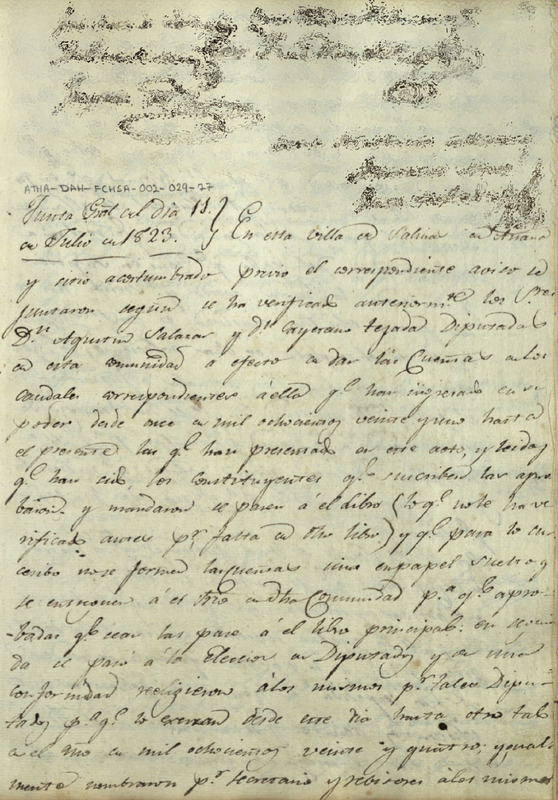 ATHA-DAH-FCHSA-002-029-77
Junta Gral del dia 11
de Julio de 1823. En esta Villa de Salinas de Añana
y sitio acostumbrado previo el correspondiente aviso se
juntaron segun se ha verificado anteriormte los Sres
Dn Agustin Salazar y Dn Cayetano tejada Diputados
de esta comunidad a efecto de dar las Cuentas de los
caudales correspondientes á ella qe han ingresado en su
poder desde once de mil ochocientos veinte y uno hasta
el presente las qe han presentado en este acto, y leidas
qe han sido, los constituyentes qe suscriben las apro
baron y mandaron se pasen á el libro (lo qe no se ha ve
rificado antes pr falta de dho libro,) y qe para lo su
cesibo no se formen las cuentas sino en papel suelto y
se entreguen á el Srio de dha Comunidad pa qe apro-
-badas qe sean las pase á el libro principal: en segui
da se pasó á la Eleccion de Diputados y de una
conformidad reeligieron á los mismos pr tales Dipu-
tados pa qe lo exerzan desde este dia hasta otro tal
de el año de mil ochocientos veinte y quatro; y ygual
mente nombraron pr secretario y rebisores á los mismos